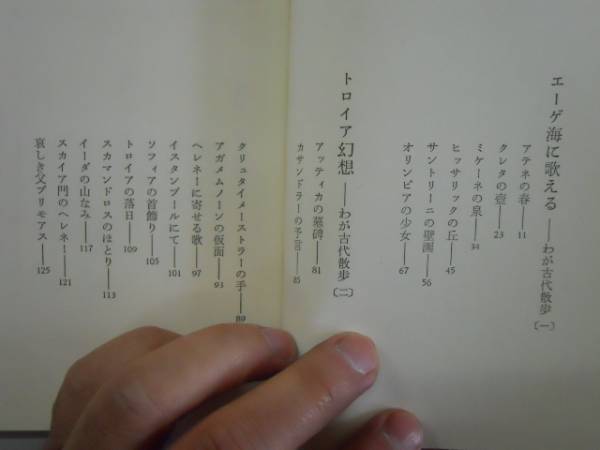 エーゲ海に歌える――わが古代散歩〔一〕
アテネの春――11
クレタの壺――23
ミケーネの泉――34
ヒッサリックの丘――45
サントリーニの壁画――56
オリンピアの少女――67
トロイア幻想――わが古代散歩〔二〕
アッティカの墓碑――81
カサンドラーの予言――85
クリュタイメーストラーの手――
アガメムノーンの仮面――93
ヘレネーに寄せる歌――97
イスタンブールにて――101
ソフィアの首飾り――105
トロイアの落日――109
スカマンドロスのほとり――113
イーダの山なみ――117
スカイア門のヘレネー――121
哀しき父プリモアス――125